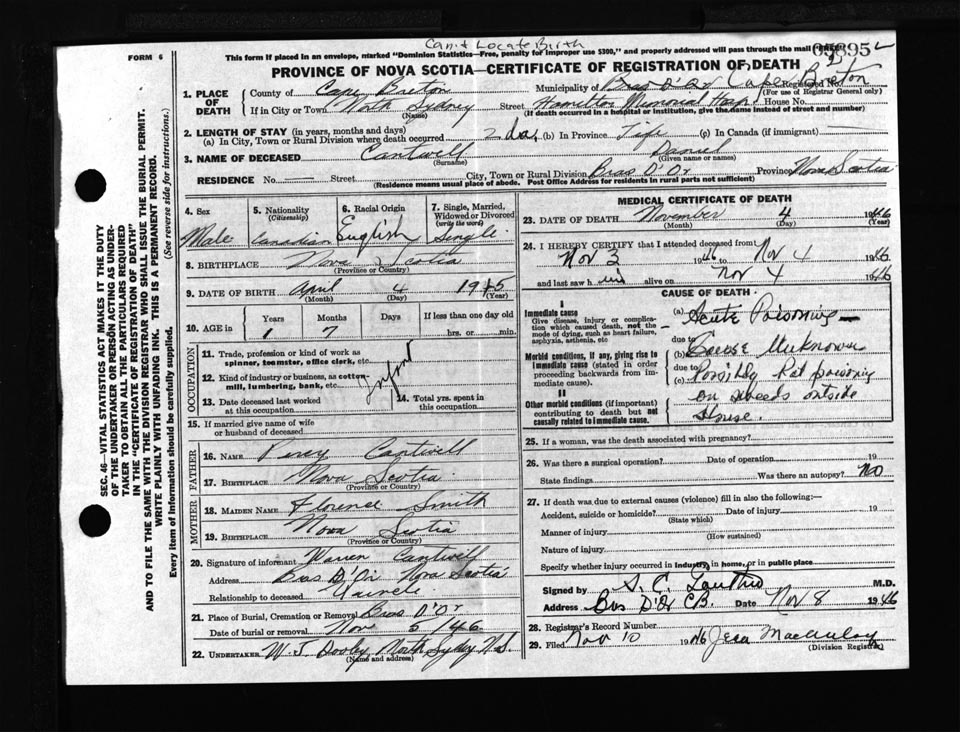 Can't Locate Birth
FORM 6
This form if placed in an envelope, marked "Dominion Statistics—Free, penalty for improper use $300," and properly addressed will pass through the mail
PROVINCE OF NOVA SCOTIA—CERTIFICATE OF REGISTRATION OF DEATH
1. PLACE OF DEATH
County of Cape Breton Municipality of Bras D'Or Cape Breton Registered No.
(For use of Registrar General only)
If in City or Town North Sydney Street Hamilton Memorial Hosp. House No.
(Name) (If death occurred in a hospital or institution, give the name instead of street and number)
2. LENGTH OF STAY (in years, months and days)
(a) In City, Town or Rural Division where death occurred 2 da. (b) In Province Life (c) In Canada (if immigrant) —
3. NAME OF DECEASED Cantwell Daniel
(Surname) (Given name or names)
RESIDENCE No. — Street City, Town or Rural Division Bras D'Or Province Nova Scotia
(Residence means usual place of abode. Post Office Address for residents in rural parts not sufficient)
4. Sex Male
5. Nationality (Citizenship) Canadian
6. Racial Origin English
7. Single, Married, Widowed or Divorced (write the word) Single
8. BIRTHPLACE Nova Scotia
(Province or Country)
9. DATE OF BIRTH April 4 1945
(Month) (Day) (Year)
10. AGE in Years Months Days If less than one day old
1 7 hrs. or min.
OCCUPATION
11. Trade, profession or kind of work as spinner, teamster, office clerk, etc.
12. Kind of industry or business, as cotton-mill, lumbering, bank, etc.
Infant
13. Date deceased last worked at this occupation
14. Total yrs. spent in this occupation
15. If married give name of wife or husband of deceased
FATHER
16. NAME Percy Cantwell
17. BIRTHPLACE Nova Scotia
(Province or Country)
MOTHER
18. MAIDEN NAME Florence Smith
19. BIRTHPLACE Nova Scotia
(Province or Country)
20. Signature of informant Warren Cantwell
Address Bras D'Or Nova Scotia
Relationship to deceased
21. Place of Burial, Cremation or Removal Bras D'Or
Date of burial or removal Nov 5/46
22. UNDERTAKER W. J. Dooley North Sydney N.S.
(Name and address)
MEDICAL CERTIFICATE OF DEATH
23. DATE OF DEATH November 4 1946
(Month) (Day) (Year)
24. I HEREBY CERTIFY that I attended deceased from
Nov 3 1946 to Nov 4 1946
and last saw him alive on Nov 4 1946
CAUSE OF DEATH
I
Immediate cause
Give disease, injury or complication which caused death, not the mode of dying, such as heart failure, asphyxia, asthenia, etc
(a) Acute Poisoning —
due to
Morbid conditions, if any, giving rise to immediate cause (stated in order proceeding backwards from immediate cause).
(b) Cause Unknown
due to
(c) Possibly Rat poisoning
on weeds outside
House.
II
Other morbid conditions (if important) contributing to death but not causally related to immediate cause.
25. If a woman, was the death associated with pregnancy?
26. Was there a surgical operation? Date of operation 19
State findings Was there an autopsy? No
27. If death was due to external causes (violence) fill in also the following:—
Accident, suicide or homicide? Date of injury 19
(State which)
Manner of injury
(How sustained)
Nature of injury
Specify whether injury occurred in industry, in home, or in public place
Signed by M.D.
Address Bras D'Or C.B. Date Nov 8 1946
28. Registrar's Record Number
29. Filed Nov 10 1946 Macaulay
(Division Registrar)
SEC. 46—VITAL STATISTICS ACT MAKES IT THE DUTY
OF THE UNDERTAKER OR PERSON ACTING AS UNDER-
TAKER TO OBTAIN ALL THE PARTICULARS REQUIRED
IN THE "CERTIFICATE OF REGISTRATION OF DEATH"
AND TO FILE THE SAME WITH THE DIVISION REGISTRAR WHO SHALL ISSUE THE BURIAL PERMIT.
WRITE PLAINLY WITH UNFADING INK. THIS IS A PERMANENT RECORD.
(See reverse side for instructions.)
Every item of Information should be carefully supplied.